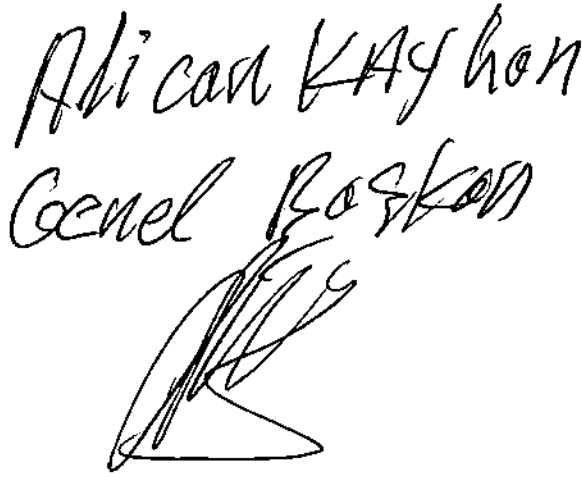 Alican KAyhan
Genel Başkan